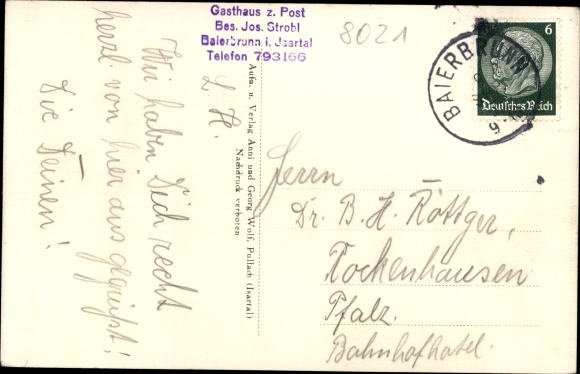 Gasthaus z. Post
Bes. Jos. Strobl
Baierbrunn i. Isartal
Telefon 793166
8021
L. H.
Wir haben Dich recht
herzl von hier aus gegrüßt!
Die Deinen!
Aufn. u. Verlag Anni und Georg Wolf, Pullach (Isartal)
Nachdruck verboten
BAIERBRUNN
6
Deutsches Reich
Herrn
Dr. B. H. Röttger,
Rockenhausen
Pfalz.
Bahnhofhotel.